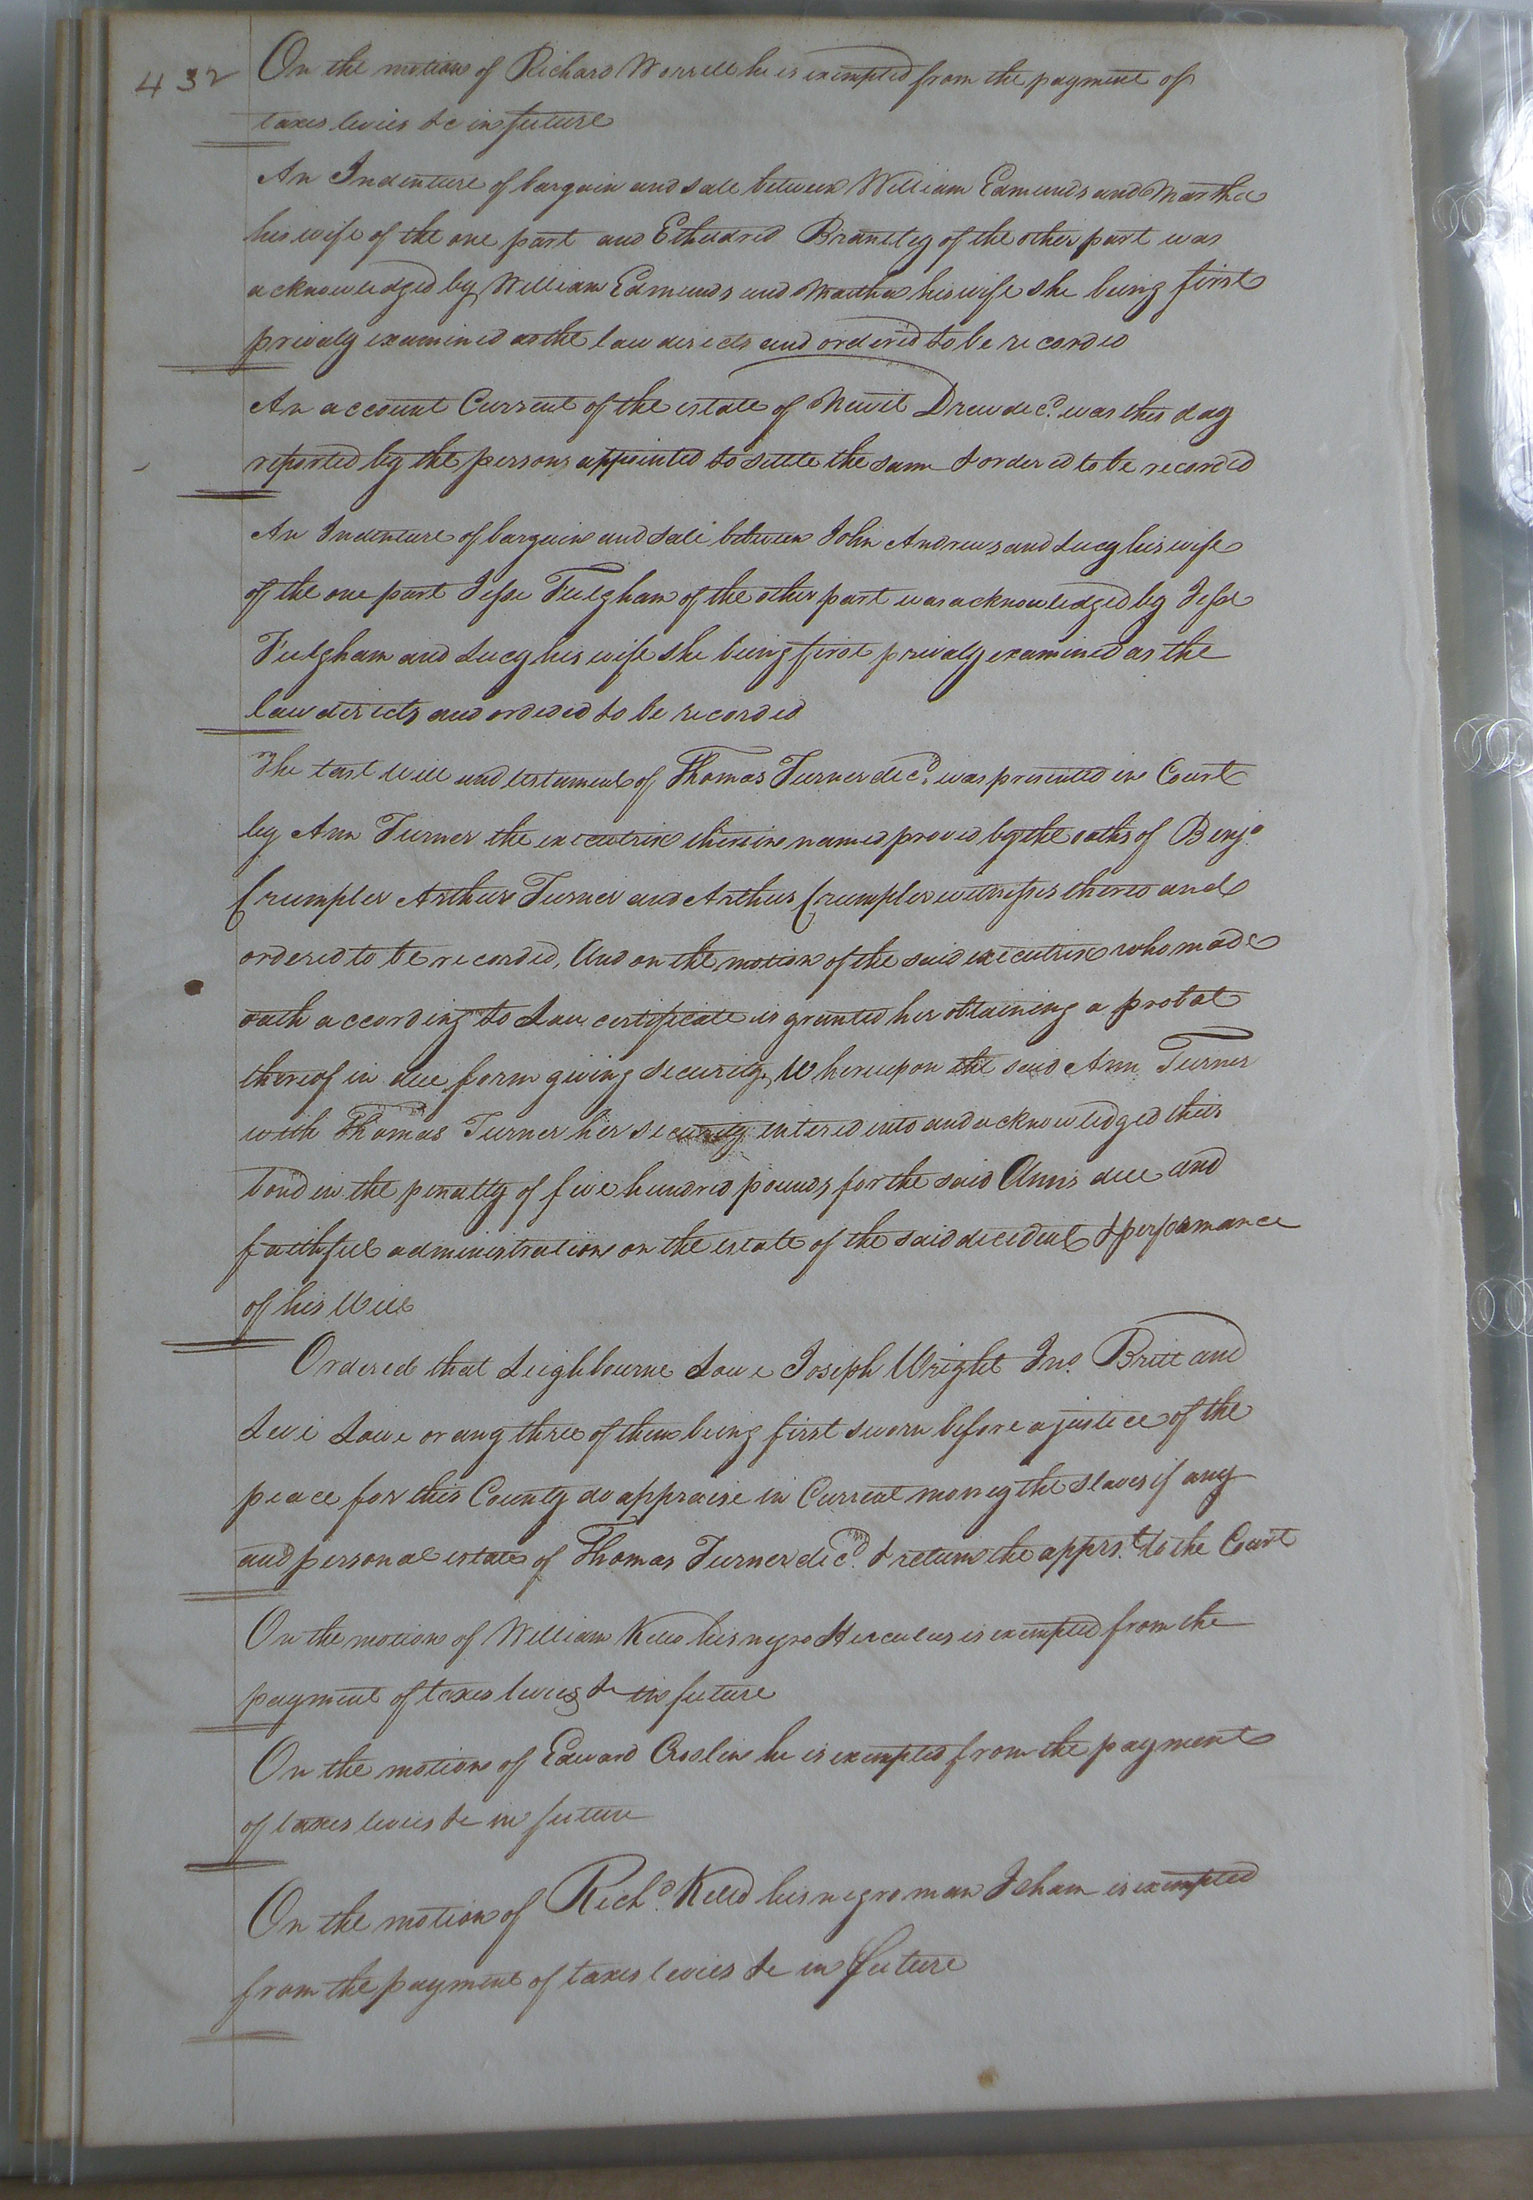 432
On the motion of Richard Worrell he is exempted from the payment of
taxes levies &c in future
An Indenture of bargain and sale between William Edmunds and Martha
his wife of the one part and Etheldred Brantley of the other part was
acknowledged by William Edmunds and Martha his wife she being first
privaly examined as the law directs and ordered to be recorded
An account Current of the estate of Newit Drew decd. was this day
reported by the persons appointed to settle the same & ordered to be recorded
An Indenture of bargain and sale between John Andrews and Lucy his wife
of the one part Jesse Fulgham of the other part was acknowledged by Jesse
Fulgham and Lucy his wife she being first privaly examined as the
law directs and ordered to be recorded
The last will and testament of Thomas Turner decd. was presented in Court
by Ann Turner the executrix therein named proved by the oaths of Benja.
Crumpler Arthur Turner and Arthur Crumpler witnesses thereto and
ordered to be recorded, And on the motion of the said executrix who made
oath according to Law certificate is granted her obtaining a probat
thereof in due form giving security, Whereupon the said Ann Turner
with Thomas Turner her security entered into and acknowledged their
bond in the penalty of five hundred pounds for the said Anns due and
faithful administration on the estate of the said decedent & performance
of his Will
Ordered that Leighbourne Lowe Joseph Wright Jno. Britt and
Levi Lowe or any three of them being first sworn before a justice of the
peace for this County do appraise in Current money the slaves if any
and personal estate of Thomas Turner decd. & return the apprst. to the Court
On the motion of William Kello his negro Herculus is exempted from the
payment of taxes levies &c in future
On the motion of Edward Croslin he is exempted from the payment
of taxes levies &c in future
On the motion of Richd. Kello his negro man Isham is exempted
from the payment of taxes levies &c in future